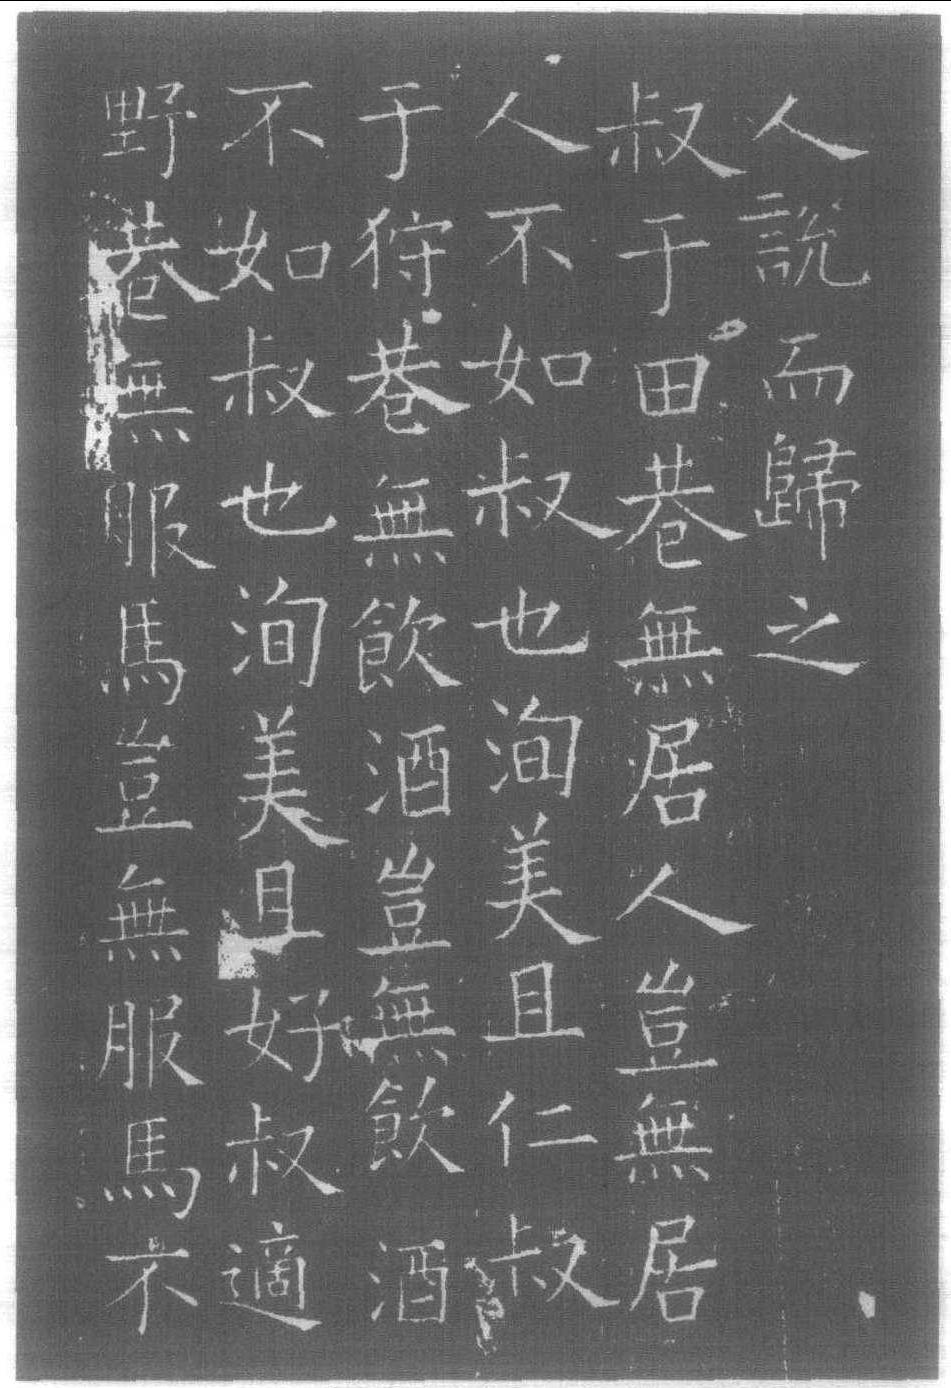 人說而歸之
叔于田巷無居人豈無居
人不如叔也洵美且仁叔
于狩巷無飲酒豈無飲酒
不如叔也洵美且好叔適
野巷無服馬豈無服馬不